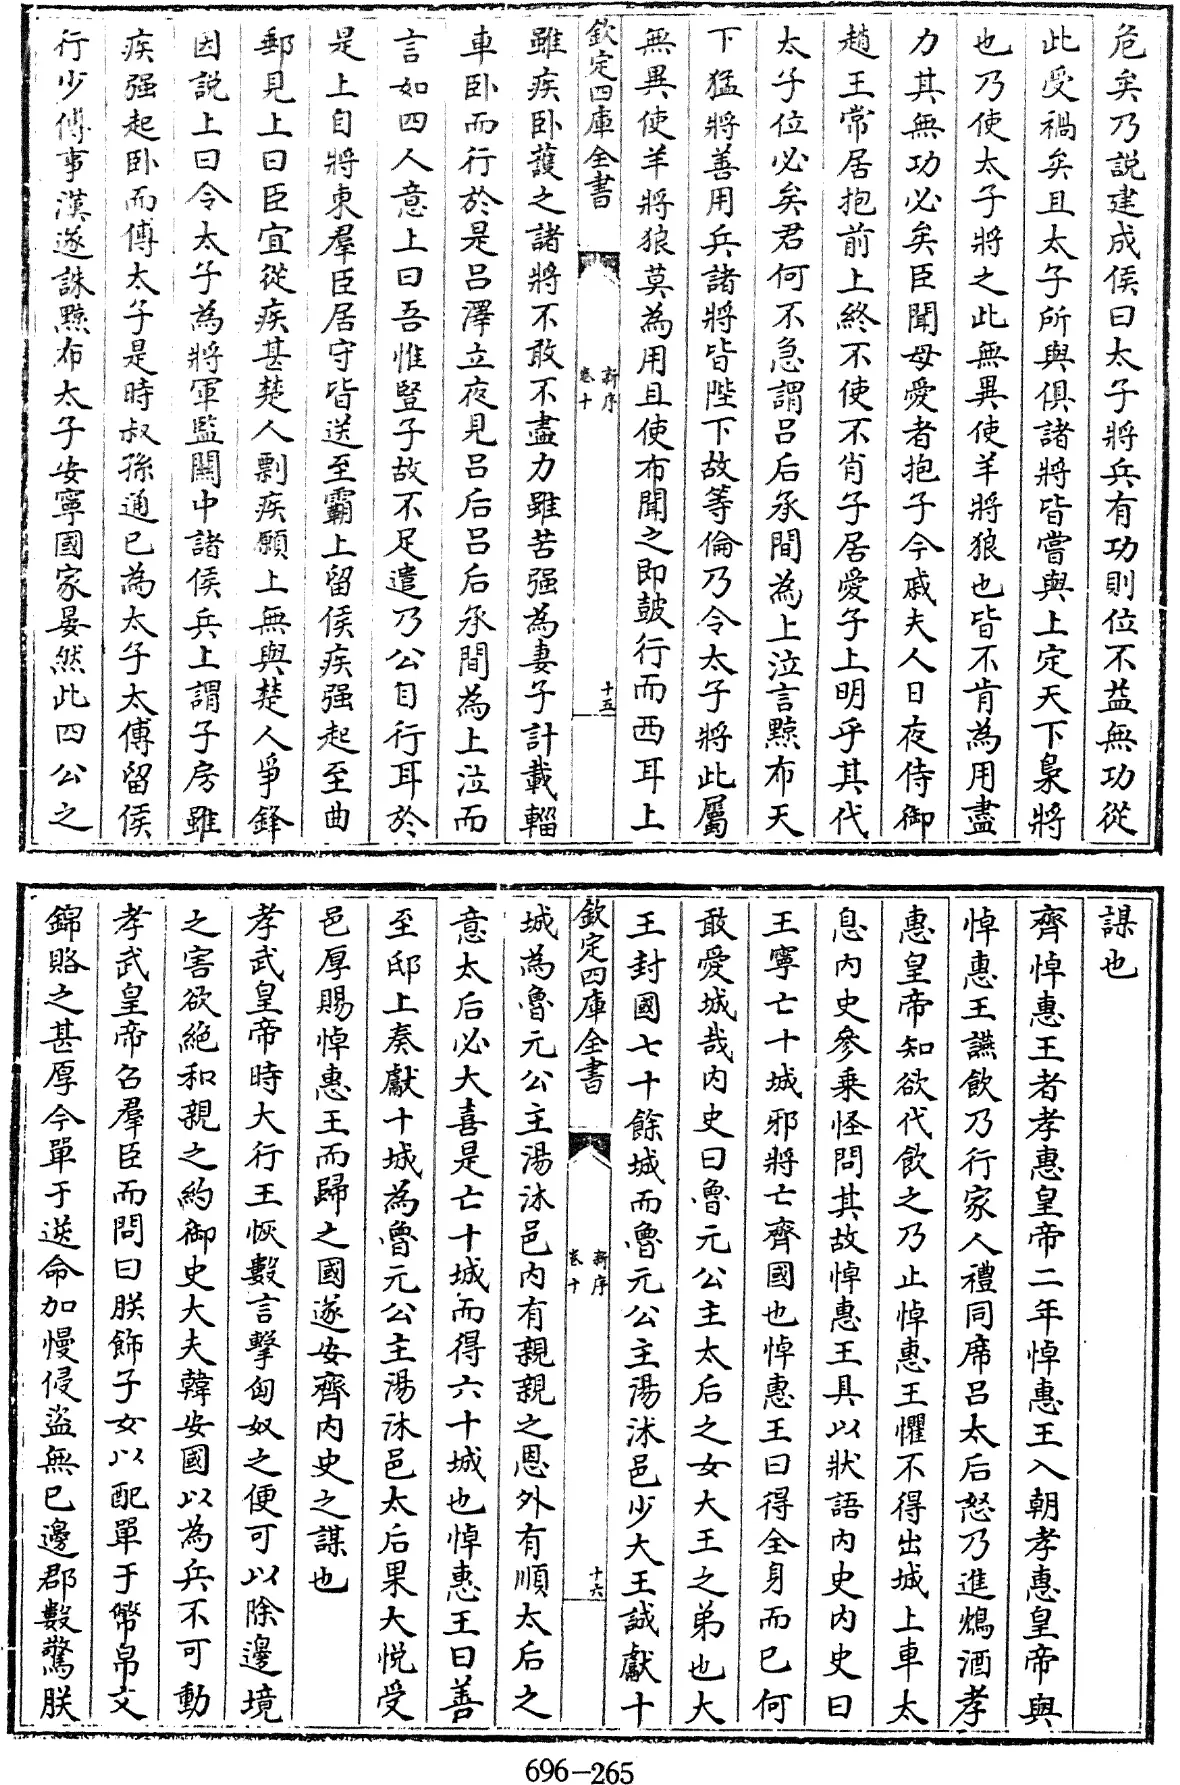 危矣乃説建成侯曰太子將兵有功則位不益無功從
此受禍矣且太子所與俱諸將皆嘗與上定天下梟將
也乃使太子將之此無異使羊將狼也皆不肯為用盡
力其無功必矣臣聞母愛者抱子今戚夫人日夜侍御
趙王常居抱前上終不使不肖子居愛子上明乎其代
太子位必矣君何不急謂吕后承間為上泣言黥布天
下猛將善用兵諸將皆陛下故等倫乃令太子將此屬
無異使羊將狼莫為用且使布聞之即鼓行而西耳上
欽定四庫全書
新序
卷十
十五
雖疾卧護之諸將不敢不盡力雖苦强為妻子計載輜
車卧而行於是吕澤立夜見吕后吕后承間為上泣而
言如四人意上曰吾惟豎子故不足遣乃公自行耳於
是上自將東羣臣居守皆送至霸上留侯疾强起至曲
郵見上曰臣宜從疾甚楚人剽疾願上無與楚人爭鋒
因説上曰令太子為將軍監關中諸侯兵上謂子房雖
疾强起卧而傅太子是時叔孫通已為太子太傅留侯
行少傅事漢遂誅黥布太子安寧國家晏然此四公之
謀也
齊悼惠王者孝惠皇帝二年悼惠王入朝孝惠皇帝與
悼惠王讌飲乃行家人禮同席吕太后怒乃進鴆酒孝
惠皇帝知欲代飲之乃止悼惠王懼不得出城上車太
息内史參乘怪問其故悼惠王具以狀語内史内史曰
王寧亡十城邪將亡齊國也悼惠王曰得全身而已何
敢愛城哉内史曰魯元公主太后之女大王之弟也大
王封國七十餘城而魯元公主湯沐邑少大王誠獻十
欽定四庫全書
新序
卷十
十六
城為魯元公主湯沐邑内有親親之恩外有順太后之
意太后必大喜是亡十城而得六十城也悼惠王曰善
至邸上奏獻十城為魯元公主湯沐邑太后果大悦受
邑厚賜悼惠王而歸之國遂安齊内史之謀也
孝武皇帝時大行王恢數言擊匈奴之便可以除邊境
之害欲絶和親之約御史大夫韓安國以為兵不可動
孝武皇帝召羣臣而問曰朕飾子女以配單于幣帛文
錦賂之甚厚今單于逆命加慢侵盜無已邊郡數驚朕
696-265